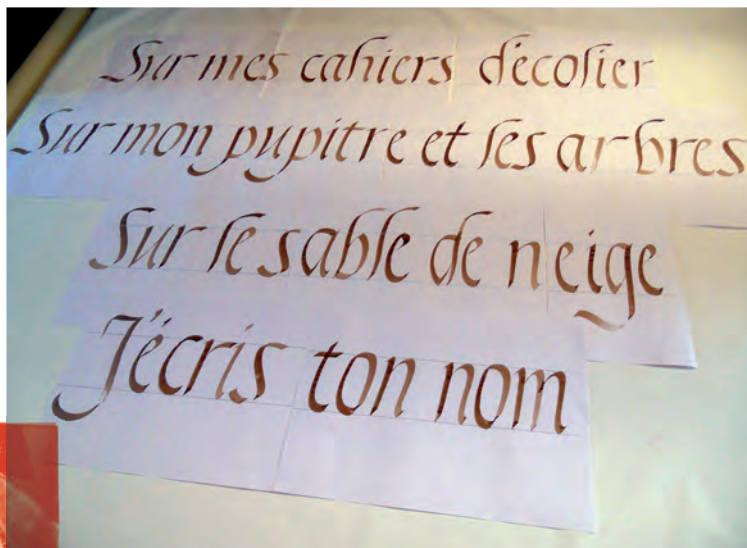 Sur mes cahiers d'écolier
Sur mon pupitre et les arbres
Sur le sable de neige
J'écris ton nom